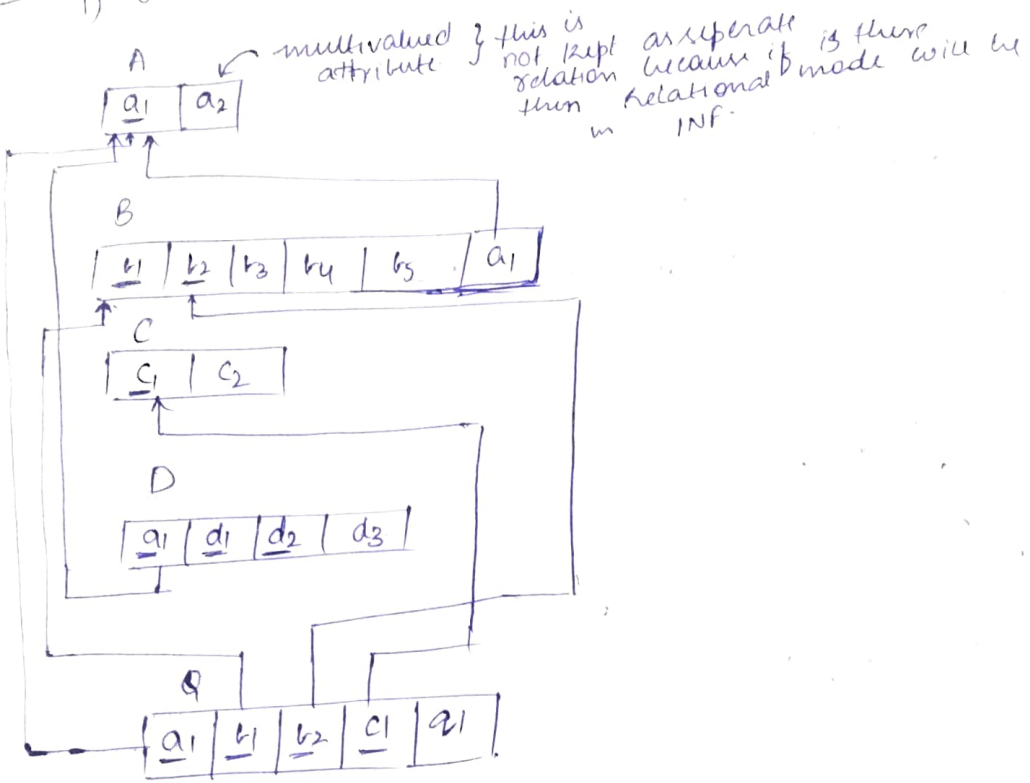 1)
A
multivalued } this is
attribute not kept as seperate
relation because if is there
then Relational mode will be
in 1NF.
a1 a2
B
b1 b2 b3 b4 b5 a1
C
c1 c2
D
a1 d1 d2 d3
Q
a1 b1 b2 c1 q1